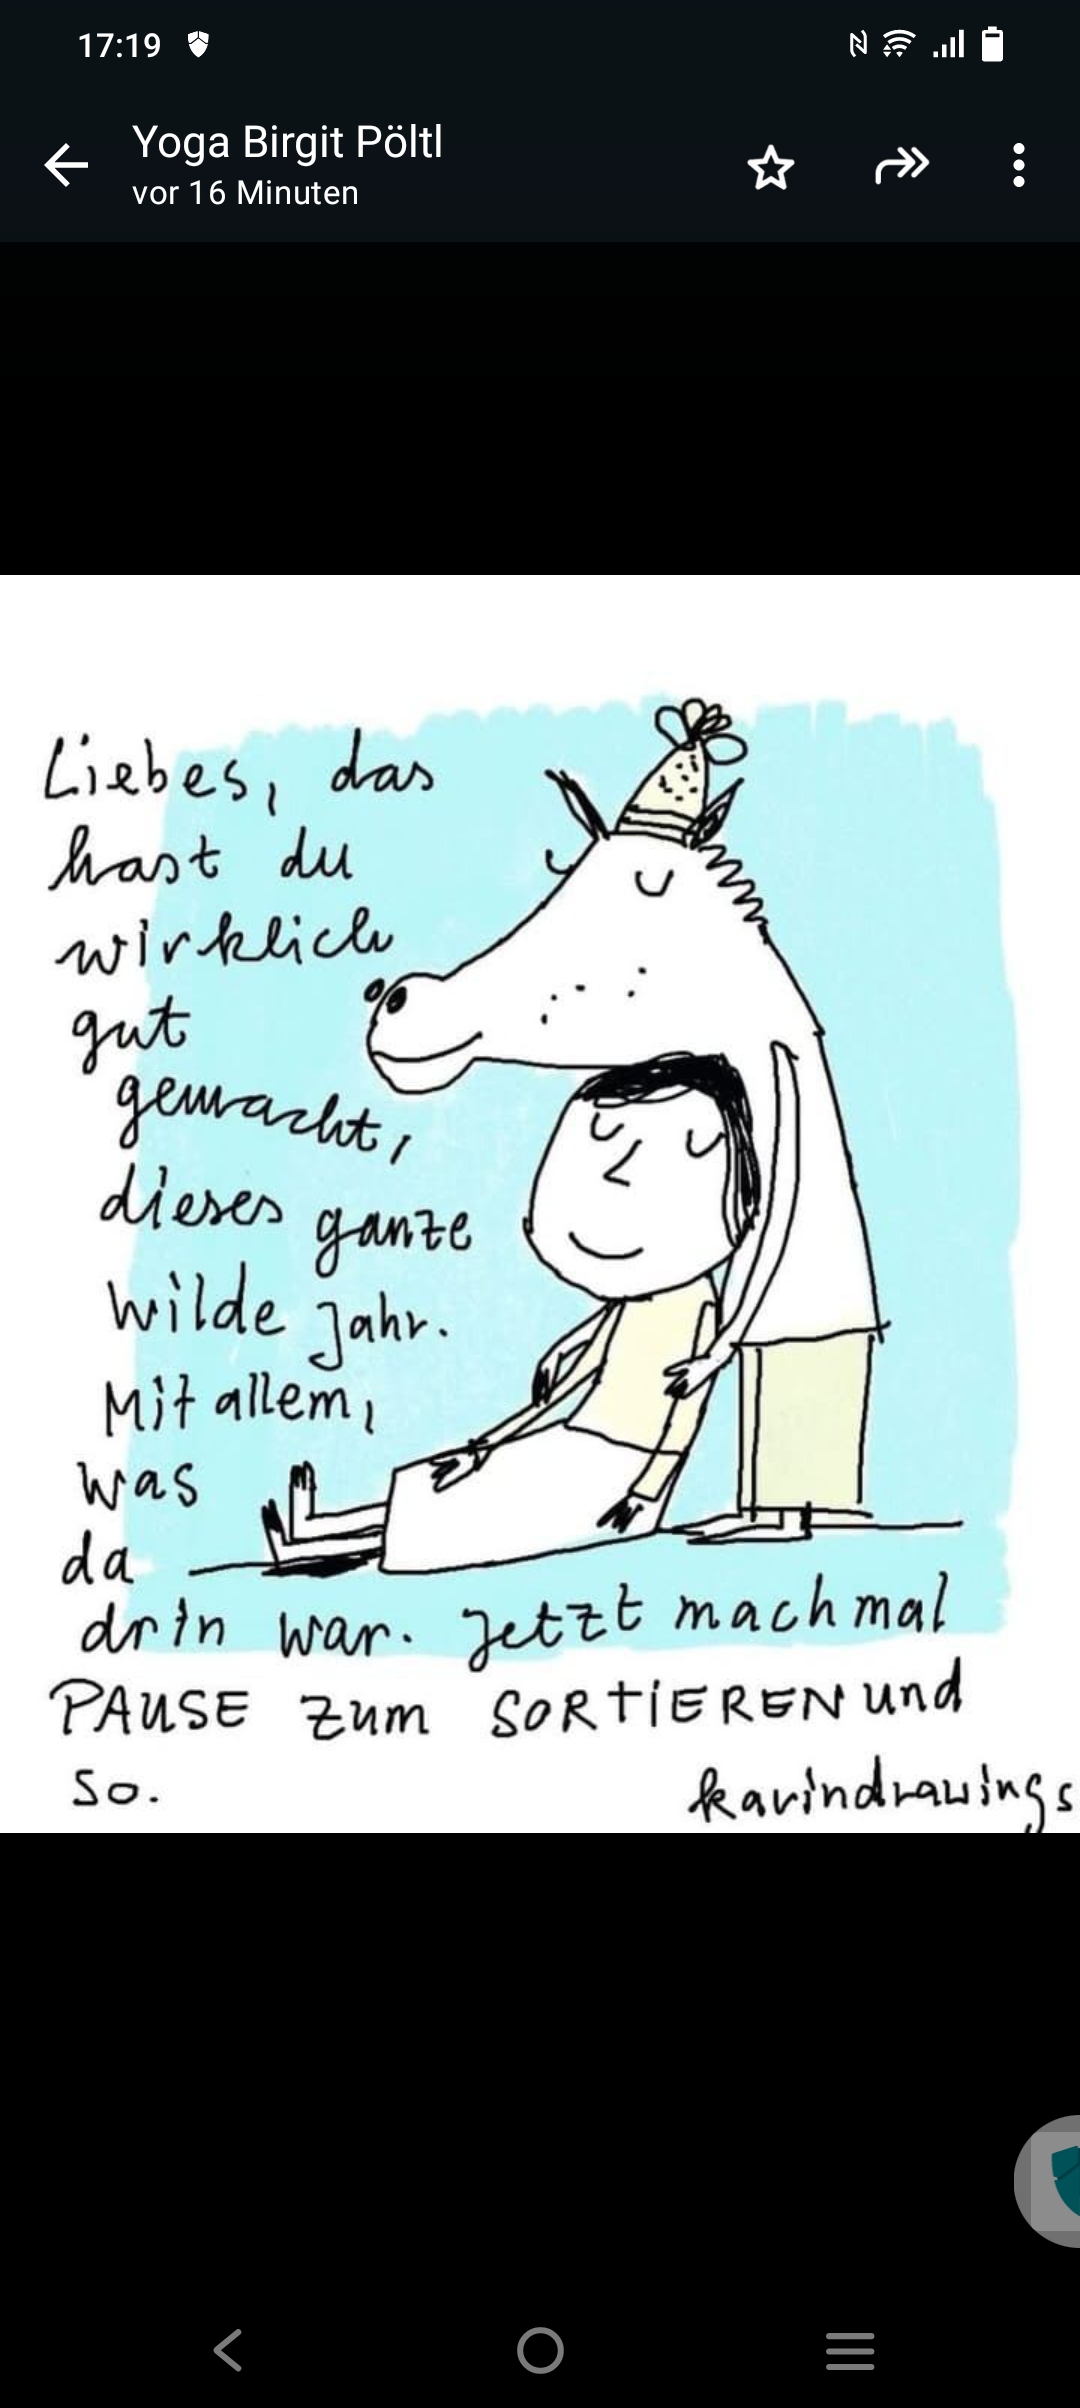 17:19
Yoga Birgit Pöltl
vor 16 Minuten
Liebes, das
hast du
wirklich
gut
gemacht,
dieses ganze
wilde Jahr.
Mit allem,
was
da
drin war. Jetzt mach mal
PAUSE zum SORTIEREN und
so.
karindrawings